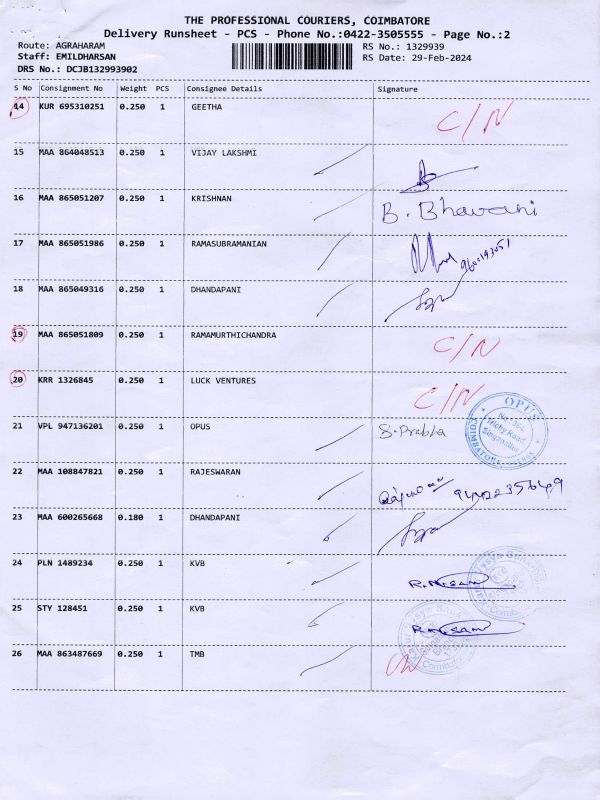 THE PROFESSIONAL COURIERS, COIMBATORE
Delivery Runsheet - PCS - Phone No.:0422-3505555 - Page No.:2
Route: AGRAHARAM RS No.: 1329939
Staff: EMILDHARSAN RS Date: 29-Feb-2024
DRS No.: DCJB132993902
S No Consignment No Weight PCS Consignee Details Signature
14 KUR 695310251 0.250 1 GEETHA C/N
15 MAA 864048513 0.250 1 VIJAY LAKSHMI
16 MAA 865051207 0.250 1 KRISHNAN B. Bhavani
17 MAA 865051986 0.250 1 RAMASUBRAMANIAN
18 MAA 865049316 0.250 1 DHANDAPANI
19 MAA 865051809 0.250 1 RAMAMURTHICHANDRA C/N
20 KRR 1326845 0.250 1 LUCK VENTURES C/N
21 VPL 947136201 0.250 1 OPUS S. Prabha OPUS Trichy Road COIMBATORE
22 MAA 108847821 0.250 1 RAJESWARAN
23 MAA 600265668 0.180 1 DHANDAPANI
24 PLN 1489234 0.250 1 KVB
25 STY 128451 0.250 1 KVB
26 MAA 863487669 0.250 1 TMB